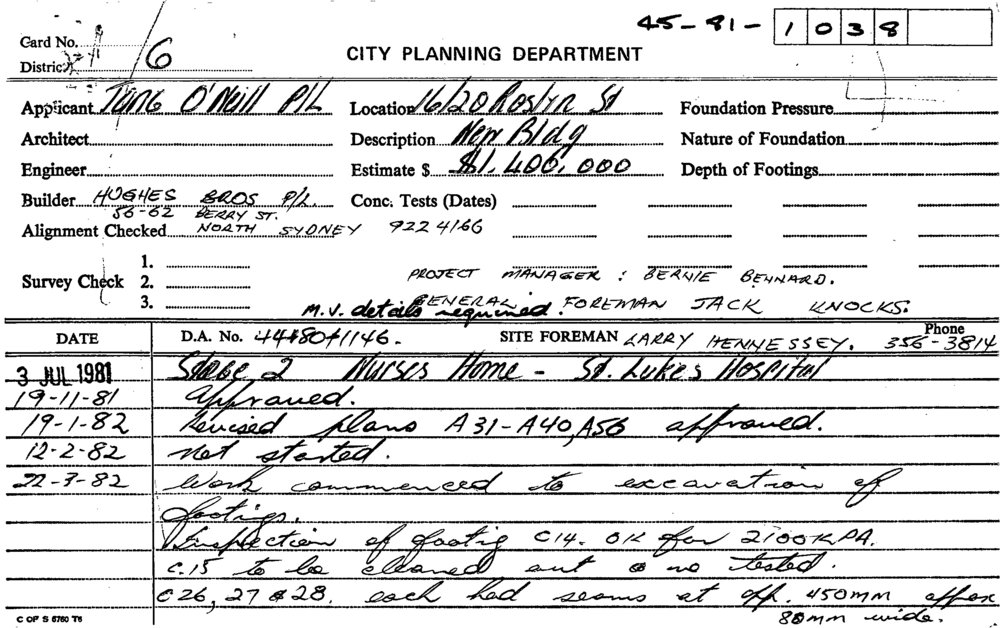 45-81-1038
Card No.
District 6
CITY PLANNING DEPARTMENT
Applicant Tong O'Neill P/L Location 16/20 Roslyn St Foundation Pressure
Architect Description New Bldg Nature of Foundation
Engineer Estimate $ $1,400,000 Depth of Footings
Builder HUGHES BROS P/L Conc. Tests (Dates)
56-62 BERRY ST.
Alignment Checked NORTH SYDNEY 922 4166
1.
Survey Check 2. PROJECT MANAGER : BERNIE BENNARD.
3. GENERAL FOREMAN JACK KNOCKS.
M.V. details required.
DATE D.A. No. 44/80/1146. SITE FOREMAN LARRY HENNESSEY. Phone 356-3814
3 JUL 1981 Stage 2 Nurses Home - St. Lukes Hospital
19-11-81 Approved.
19-1-82 Revised plans A31-A40, A56 approved.
12-2-82 Not started.
22-3-82 Work commenced to excavation of
footings.
Inspection of footig C14. OK for 2100 KPA.
C.15 to be cleaned out & no tested.
C26, 27 & 28. each had seams at app. 450MM approx
80mm wide.
C OF S 6760 T6